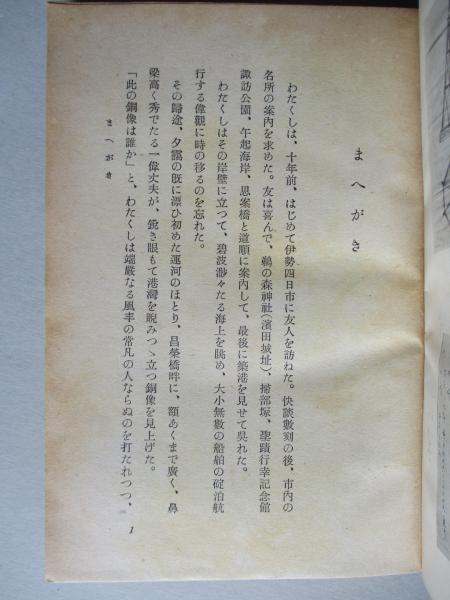 まへがき
わたくしは、十年前、はじめて伊勢四日市に友人を訪ねた。快談數刻の後、市内の
名所の案内を求めた。友は喜んで、鵜の森神社（濱田城址）、掃部塚、聖蹟行幸記念館
諏訪公園、午起海岸、思案橋と道順に案内して、最後に築港を見せて呉れた。
わたくしはその岸壁に立つて、碧波渺々たる海上を眺め、大小無數の船舶の碇泊航
行する偉觀に時の移るのを忘れた。
その歸途、夕靄の既に漂ひ初めた運河のほとり、昌榮橋畔に、額あくまで廣く、鼻
梁高く秀でたる一偉丈夫が、鋭き眼もて港灣を睨みつゝ立つ銅像を見上げた。
「此の銅像は誰か」と、わたくしは端嚴なる風丰の常凡の人ならぬのを打たれつつ、
まへがき
1